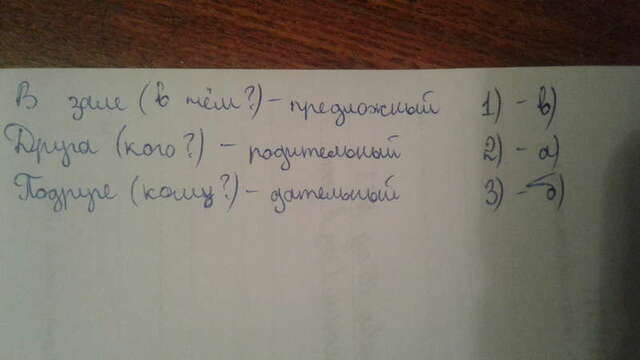 В зале (в чём?) - предложный 1) - в)
Друга (кого?) - родительный 2) - а)
Подруге (кому?) - дательный 3) - б)